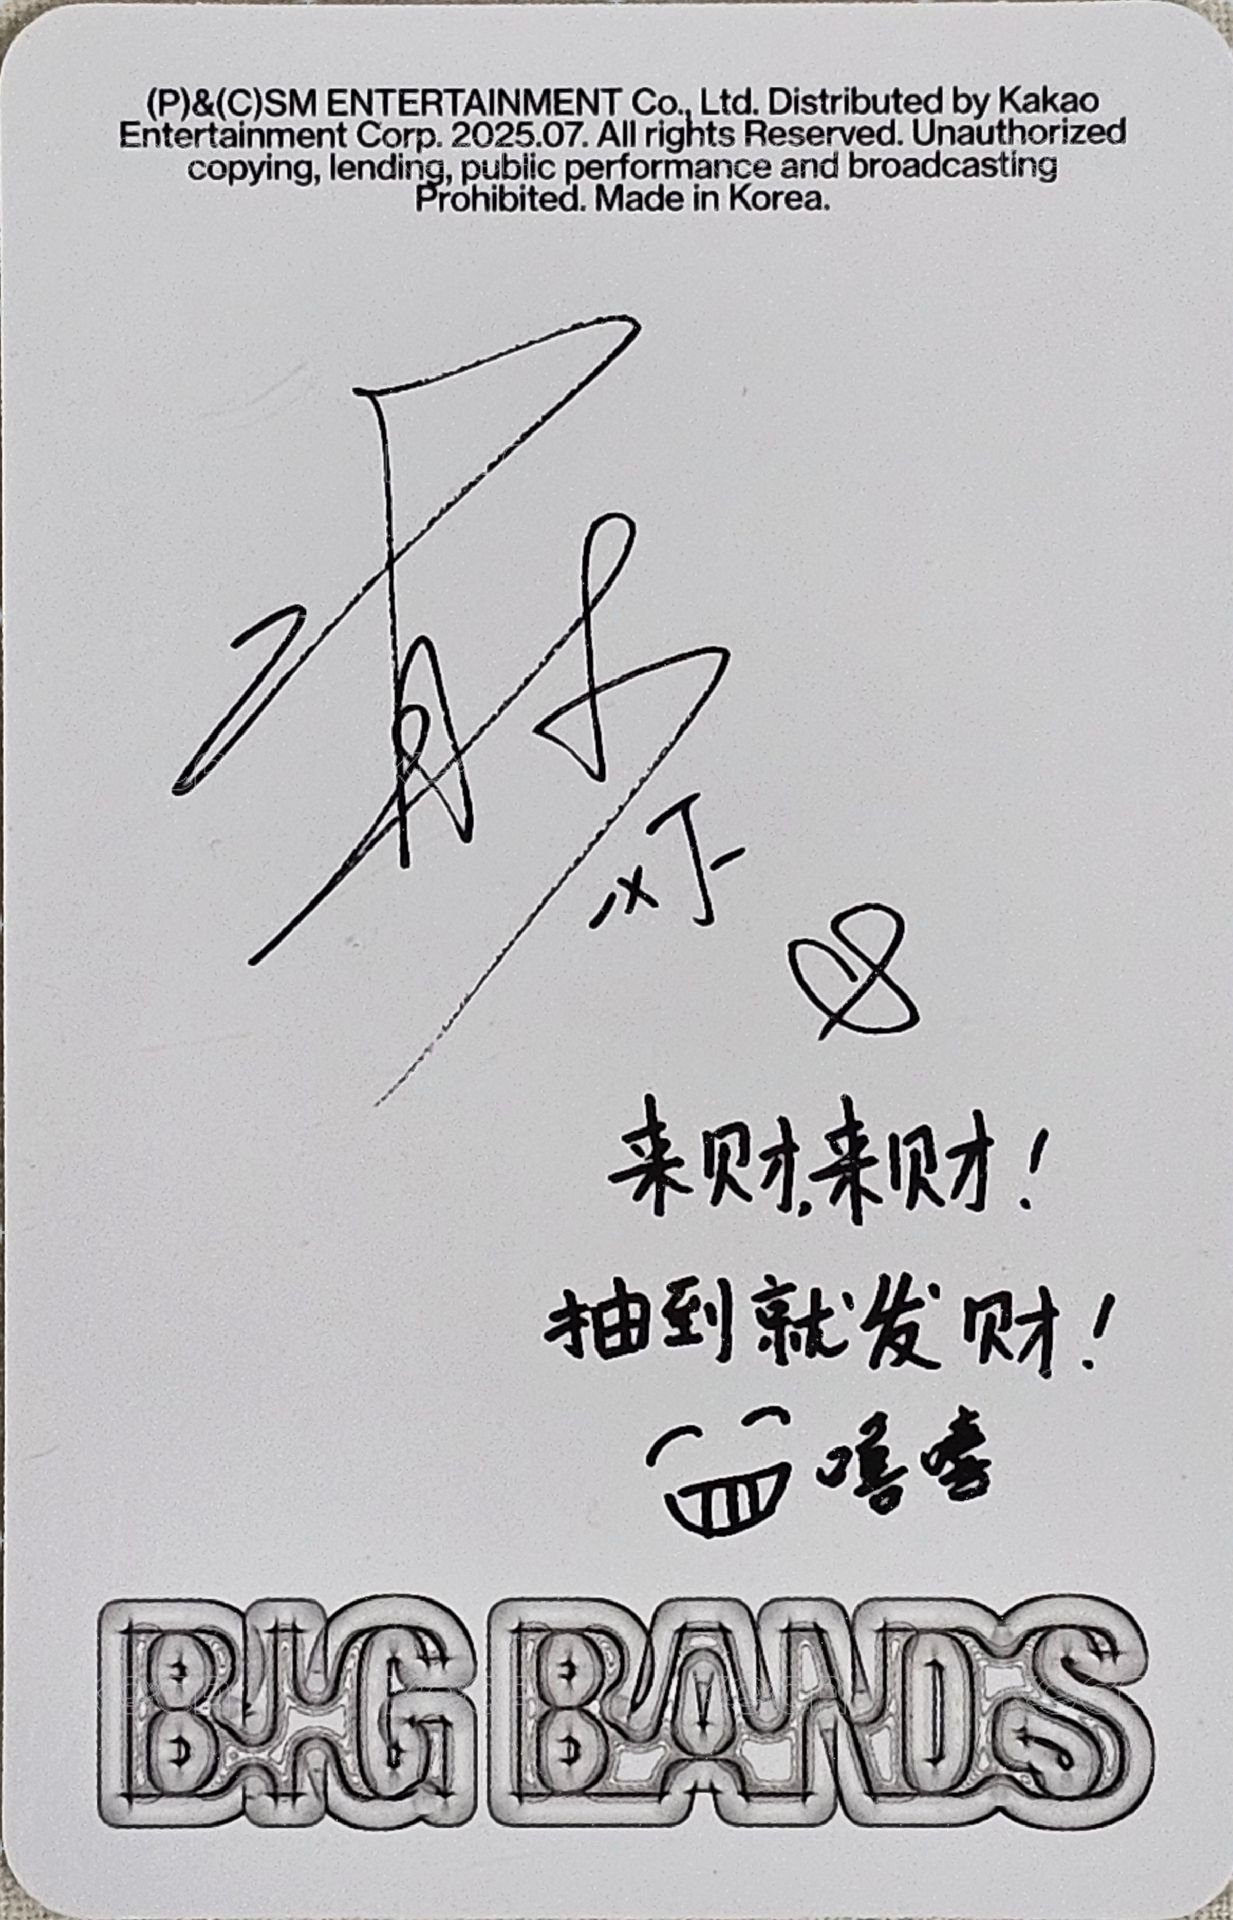 (P)&(C)SM ENTERTAINMENT Co., Ltd. Distributed by Kakao
Entertainment Corp. 2025.07. All rights Reserved. Unauthorized
copying, lending, public performance and broadcasting
Prohibited. Made in Korea.
来财,来财!
抽到就发财!
嘻嘻
BIG BANDS